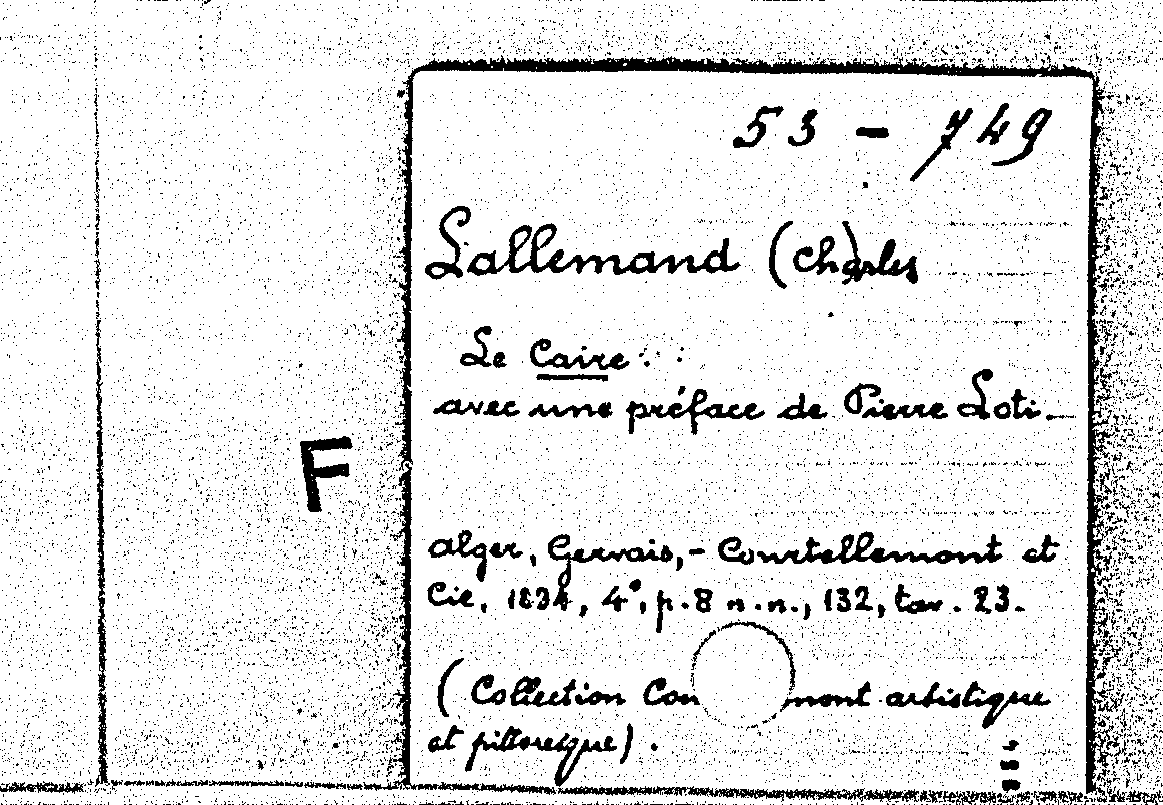 53 - 749
Lallemand (Charles
Le Caire.
avec une préface de Pierre Loti.
F
Alger, Gervais,- Courtellemont et
Cie, 1894, 4°, p. 8 n.n., 132, tav. 23.
(Collection artistique
et pittoresque).